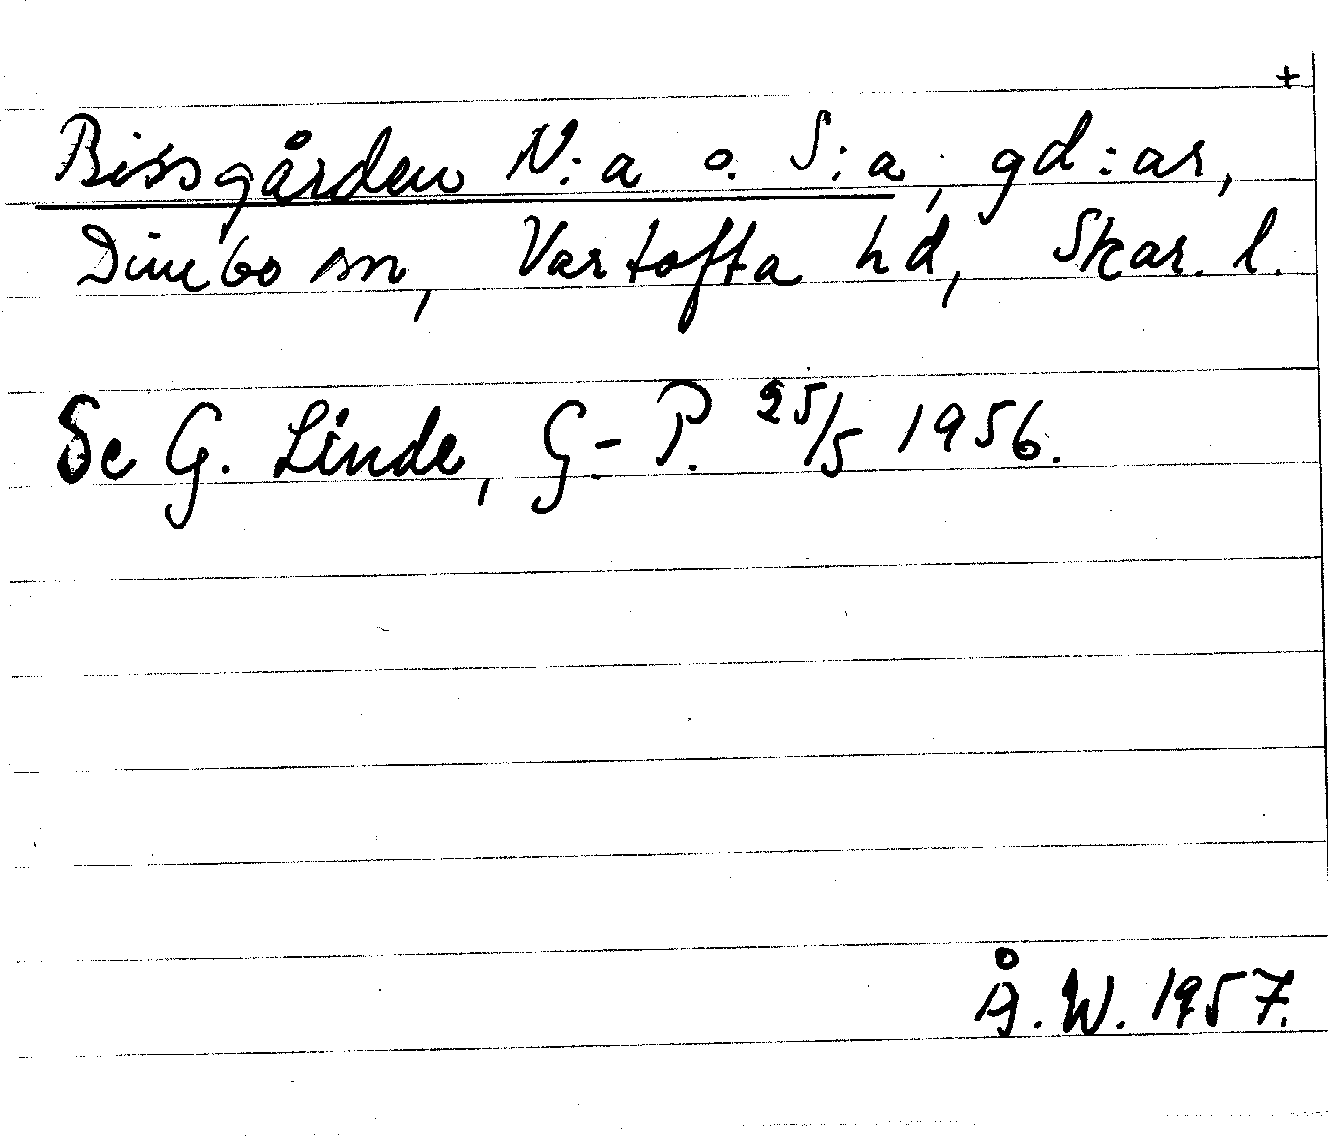 +
Bissgården N:a o. S:a, gd:ar,
Dimbo sn, Vartofta hd, Skar. l.
Se G. Linde, G-P. 25/5 1956.
Å.W. 1957.